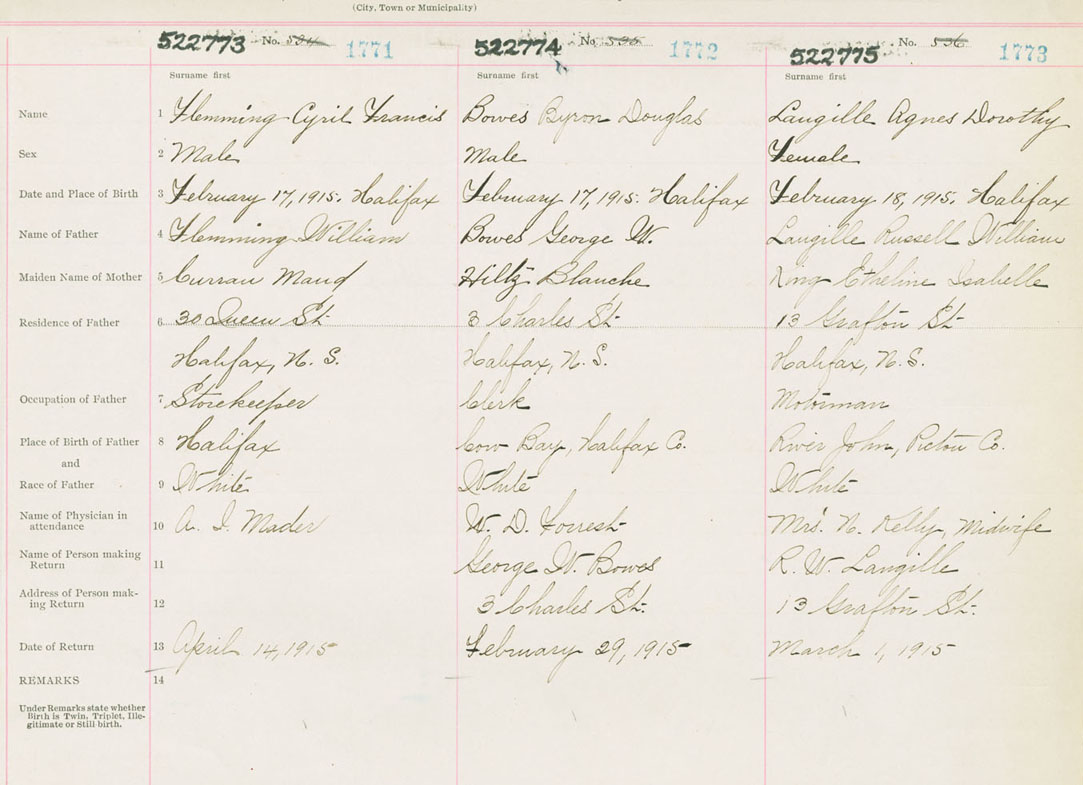 (City, Town or Municipality)
522773 No. 534 1771 522774 No. 535 1772 522775 No. 536 1773
Surname first Surname first Surname first
Name 1 Flemming Cyril Francis Bowes Byron Douglas Langille Agnes Dorothy
Sex 2 Male Male Female
Date and Place of Birth 3 February 17, 1915. Halifax February 17, 1915. Halifax February 18, 1915. Halifax
Name of Father 4 Flemming William Bowes George W. Langille Russell William
Maiden Name of Mother 5 Curran Maud Hiltz Blanche King Etheline Isabelle
Residence of Father 6 30 Queen St. 3 Charles St. 13 Grafton St.
Halifax, N. S. Halifax, N. S. Halifax, N. S.
Occupation of Father 7 Storekeeper Clerk Motorman
Place of Birth of Father 8 Halifax Cow Bay, Halifax Co. River John, Pictou Co.
and
Race of Father 9 White White White
Name of Physician in
attendance 10 A. I. Mader W. D. Forrest Mrs. N. Kelly, Midwife
Name of Person making
Return 11 George W. Bowes R. W. Langille
Address of Person mak-
ing Return 12 3 Charles St. 13 Grafton St.
Date of Return 13 April 14, 1915 February 29, 1915 March 1, 1915
REMARKS 14
Under Remarks state whether
Birth is Twin, Triplet, Ille-
gitimate or Still-birth.